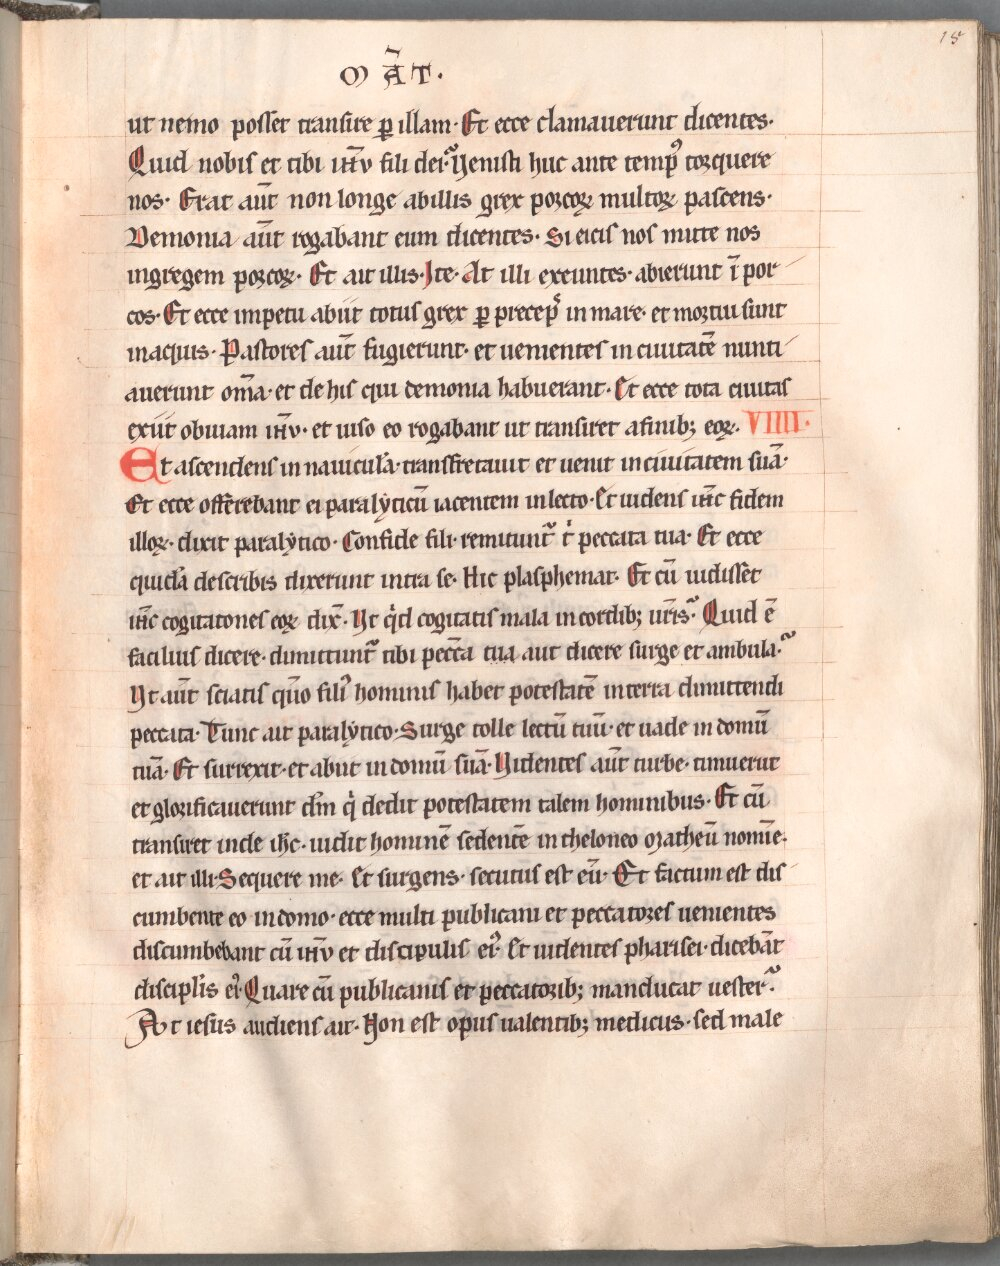 15
M ĀT.
ut nemo posset transire ꝑ illam· Et ecce clamauerunt dicentes·
Quid nobis et tibi ih̅u fili dei? Venisti huc ante tempꝰ torquere
nos· Erat aut̅ non longe abillis grex porcoꝝ multoꝝ pascens·
Demonia aut̅ rogabant eum dicentes· Si eicis nos mitte nos
ingregem porcoꝝ· Et ait illis· Ite· At illi exeuntes· abierunt ı̅ por
cos· Et ecce impetu abiit totus grex ꝑ precepˢ in mare· et mortui sunt
inaquis· Pastores aut̅ fugierunt· et uenientes in ciuitate̅ nunti
auerunt om̅a· et de his qui demonia habuerant· Et ecce tota ciuitas
exiit obuiam ih̅u· et uiso eo rogabant ut transiret afinibꝫ eoꝝ· VIIII·
Et ascendens in nauicul̅a· transfretauit et uenit inciuitatem sua̅·
Et ecce offerebant ei paralyticu̅ iacentem inlecto· Et uidens ih̅c fidem
illoꝝ· dixit paralytico· Confide fili· remittunt᷑ tⁱ peccata tua· Et ecce
quida̅ describis dixerunt intra se· Hic plasphemat· Et cu̅ uidisset
ih̅c cogitatones eoꝝ dix̅· Vt qⁱd cogitatis mala incordibꝫ ur̅is? Quid e̅
facilius dicere· dimittunt᷑ tibi pecc̅a tua aut dicere surge et ambula?
Vt aut̅ sciatis quo̅ filiꝰ hominis habet potestate̅ interra dimittendi
peccata· Tunc ait paralytico· Surge tolle lectu̅ tuu̅· et uade in domu̅
tua̅· Et surrexit· et abiit indomu̅ sua̅· Videntes aut̅ turbe· timuerut
et glorificauerunt dm̅ qⁱ dedit potestatem talem hominibus· Et cu̅
transiret inde ih̅c· uidit homine̅ sedente̅ in theloneo matheu̅ nomi̅e·
et ait illi· Sequere me· Et surgens· secutus est eu̅· Et factum est dis
cumbente eo indomo· ecce multi publicani et peccatores uenientes
discumbebant cu̅ ih̅u et discipulis eiꝰ· Et uidentes pharisei· diceba̅t
discipl̅is eiꝰ· Quare cu̅ publicanis et peccatoribꝫ manducat uester?
At iesus audiens ait· Non est opus ualentibꝫ medicus· sed male